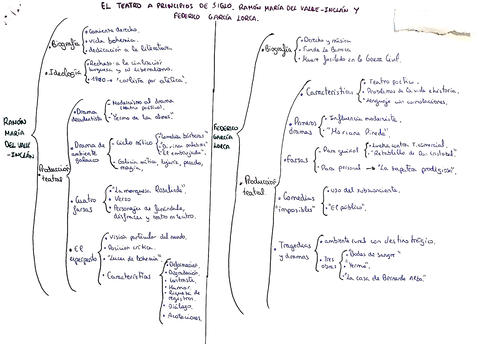 EL TEATRO A PRINCIPIOS DE SIGLO. RAMÓN MARÍA DEL VALLE-INCLÁN Y
FEDERICO GARCÍA LORCA.
RAMÓN
MARÍA
DEL VALLE
-INCLÁN
• Biografía
• Comienza derecho.
• Vida bohemia.
• Dedicación a la literatura.
• Ideología
• Rechazo a la civilización
burguesa y al liberalismo.
• 1910 → "carlista por estética".
• Producción
teatral
• Drama
decadentista
• Modernismo al drama
(teatro poético).
• "Yermo de las almas"
• Drama de
ambiente
galaico
• Ciclo mítico
• "Comedias bárbaras"
• "Divinas palabras"
• "El embrujado".
• Galicia mítica, lujuria, pecado,
magia,
• Cuatro
farsas
• "La marquesa Rosalinda".
• Verso
• Personajes de farándula,
disfraces y teatro en teatro.
• El
esperpento
• Visión particular del mundo.
• Posición crítica.
• "Luces de bohemia"
• Características
• Deformación.
• Degradación.
• Contraste.
• Humor.
• Riqueza de
registros.
• Diálogo.
• Acotaciones.
FEDERICO
GARCÍA
LORCA
• Biografía
• Derecho y música
• Funda la Barraca
• Muere fusilado en la Guerra Civil.
• Producción
teatral
• Características
• Teatro poético.
• Problemas de la vida e historia.
• Lenguaje con connotaciones.
• Primeros
dramas
• Influencia modernista.
• "Mariana Pineda".
• Farsas
• Para guiñol
• Lucha contra T. comercial.
• "Retablillo de Don Cristobal"
• Para persona → "La zapatera prodigiosa".
• Comedias
"imposibles"
• uso del subconsciente.
• "El público".
• Tragedias
y dramas
• ambiente rural con destino trágico.
• Tres
obras
• "Bodas de sangre"
• "Yerma".
• "La casa de Bernarda Alba"